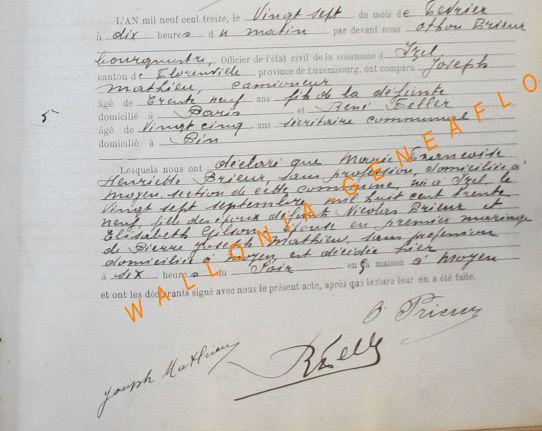 L'AN mil neuf cent treize, le Vingt sept du mois de Février
à dix heures du matin par devant nous Othon Brieur
bourgmestre, Officier de l'état civil de la commune d' Izel
canton de Florenville province de Luxembourg, ont comparu Joseph
Mathieu, camioneur
âgé de trente neuf ans fils de la défunte
domicilié à Paris & René Feller
âgé de Vingt cinq ans secrétaire communal
domicilié à Pin
5
Lesquels nous ont déclaré que Marie Françoise
Henriette Brieur, sans profession, domiciliée à
moyen, section de cette commune, née à Izel, le
Vingt sept septembre mil huit cent trente
neuf, fille des époux défunts Nicolas Brieur et
Elisabeth Gilson, épouse en premier mariage
de Pierre Joseph Mathieu, sans profession
domicilié à moyen est décédée hier
à six heures du Soir en sa maison à moyen
et ont les déclarants signé avec nous le présent acte, après que lecture leur en a été faite.
O Brieur
Joseph Mathieu
RFeller
WALLONIA GENEAFLO